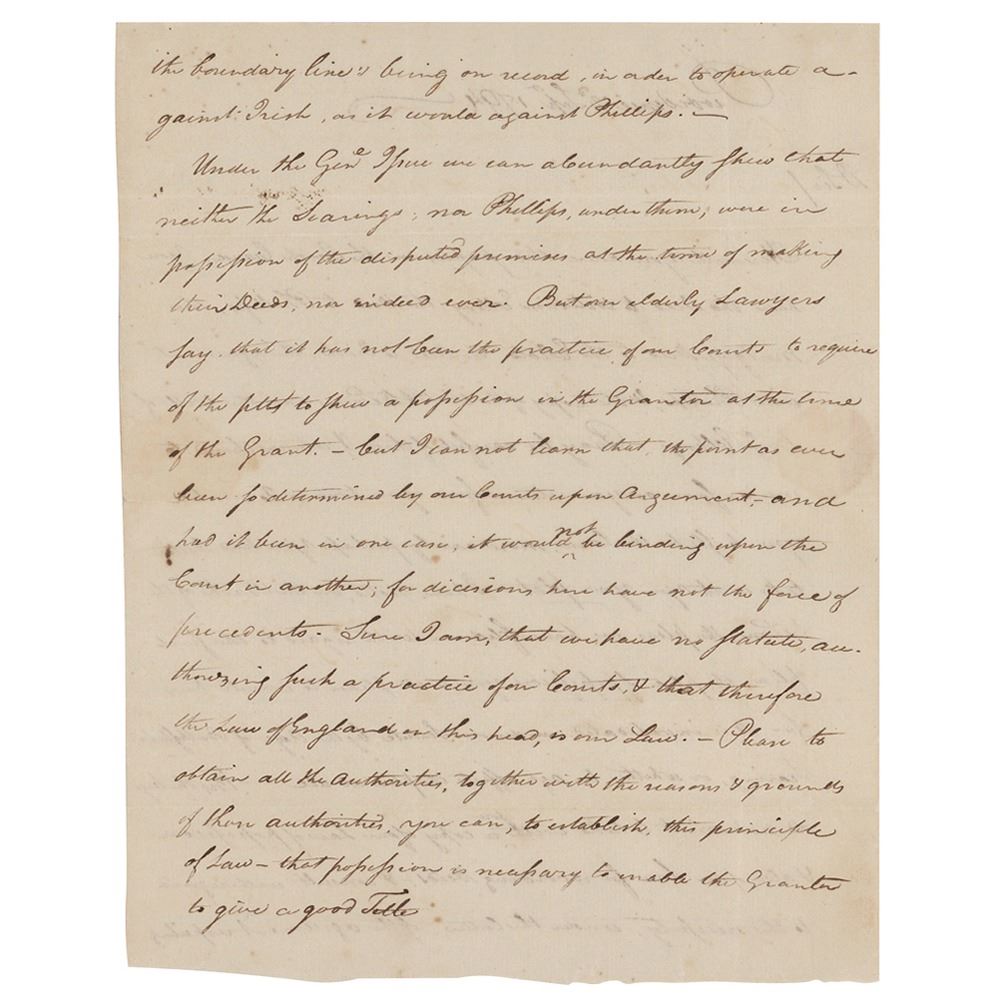 the boundary line's being on record, in order to operate a-
gainst Irish, as it would against Phillips. —
Under the Genˡ Issue we can abundantly shew that
neither the Searings, nor Phillips, under them, were in
possession of the disputed premises at the time of making
their Deeds, nor indeed ever. But our elderly Lawyers
say, that it has not been the practice of our Courts to require
of the pltts to shew a possession in the Grantor at the time
of the Grant. — but I can not learn that the point as ever
been so determined by our Courts upon Argument, – and
had it been in one case, it would not be binding upon the
Court in another; for dicisions here have not the force of
precedents. Sure I am, that we have no Statute, au-
thorizing such a practice of our Courts, & that therefore
the Law of England on this head, is our Law. — Please to
obtain all the authorities, together with the reasons & grounds
of those authorities, you can, to establish, this principle
of Law — that possession is necessary to enable the Grantor
to give a good Title